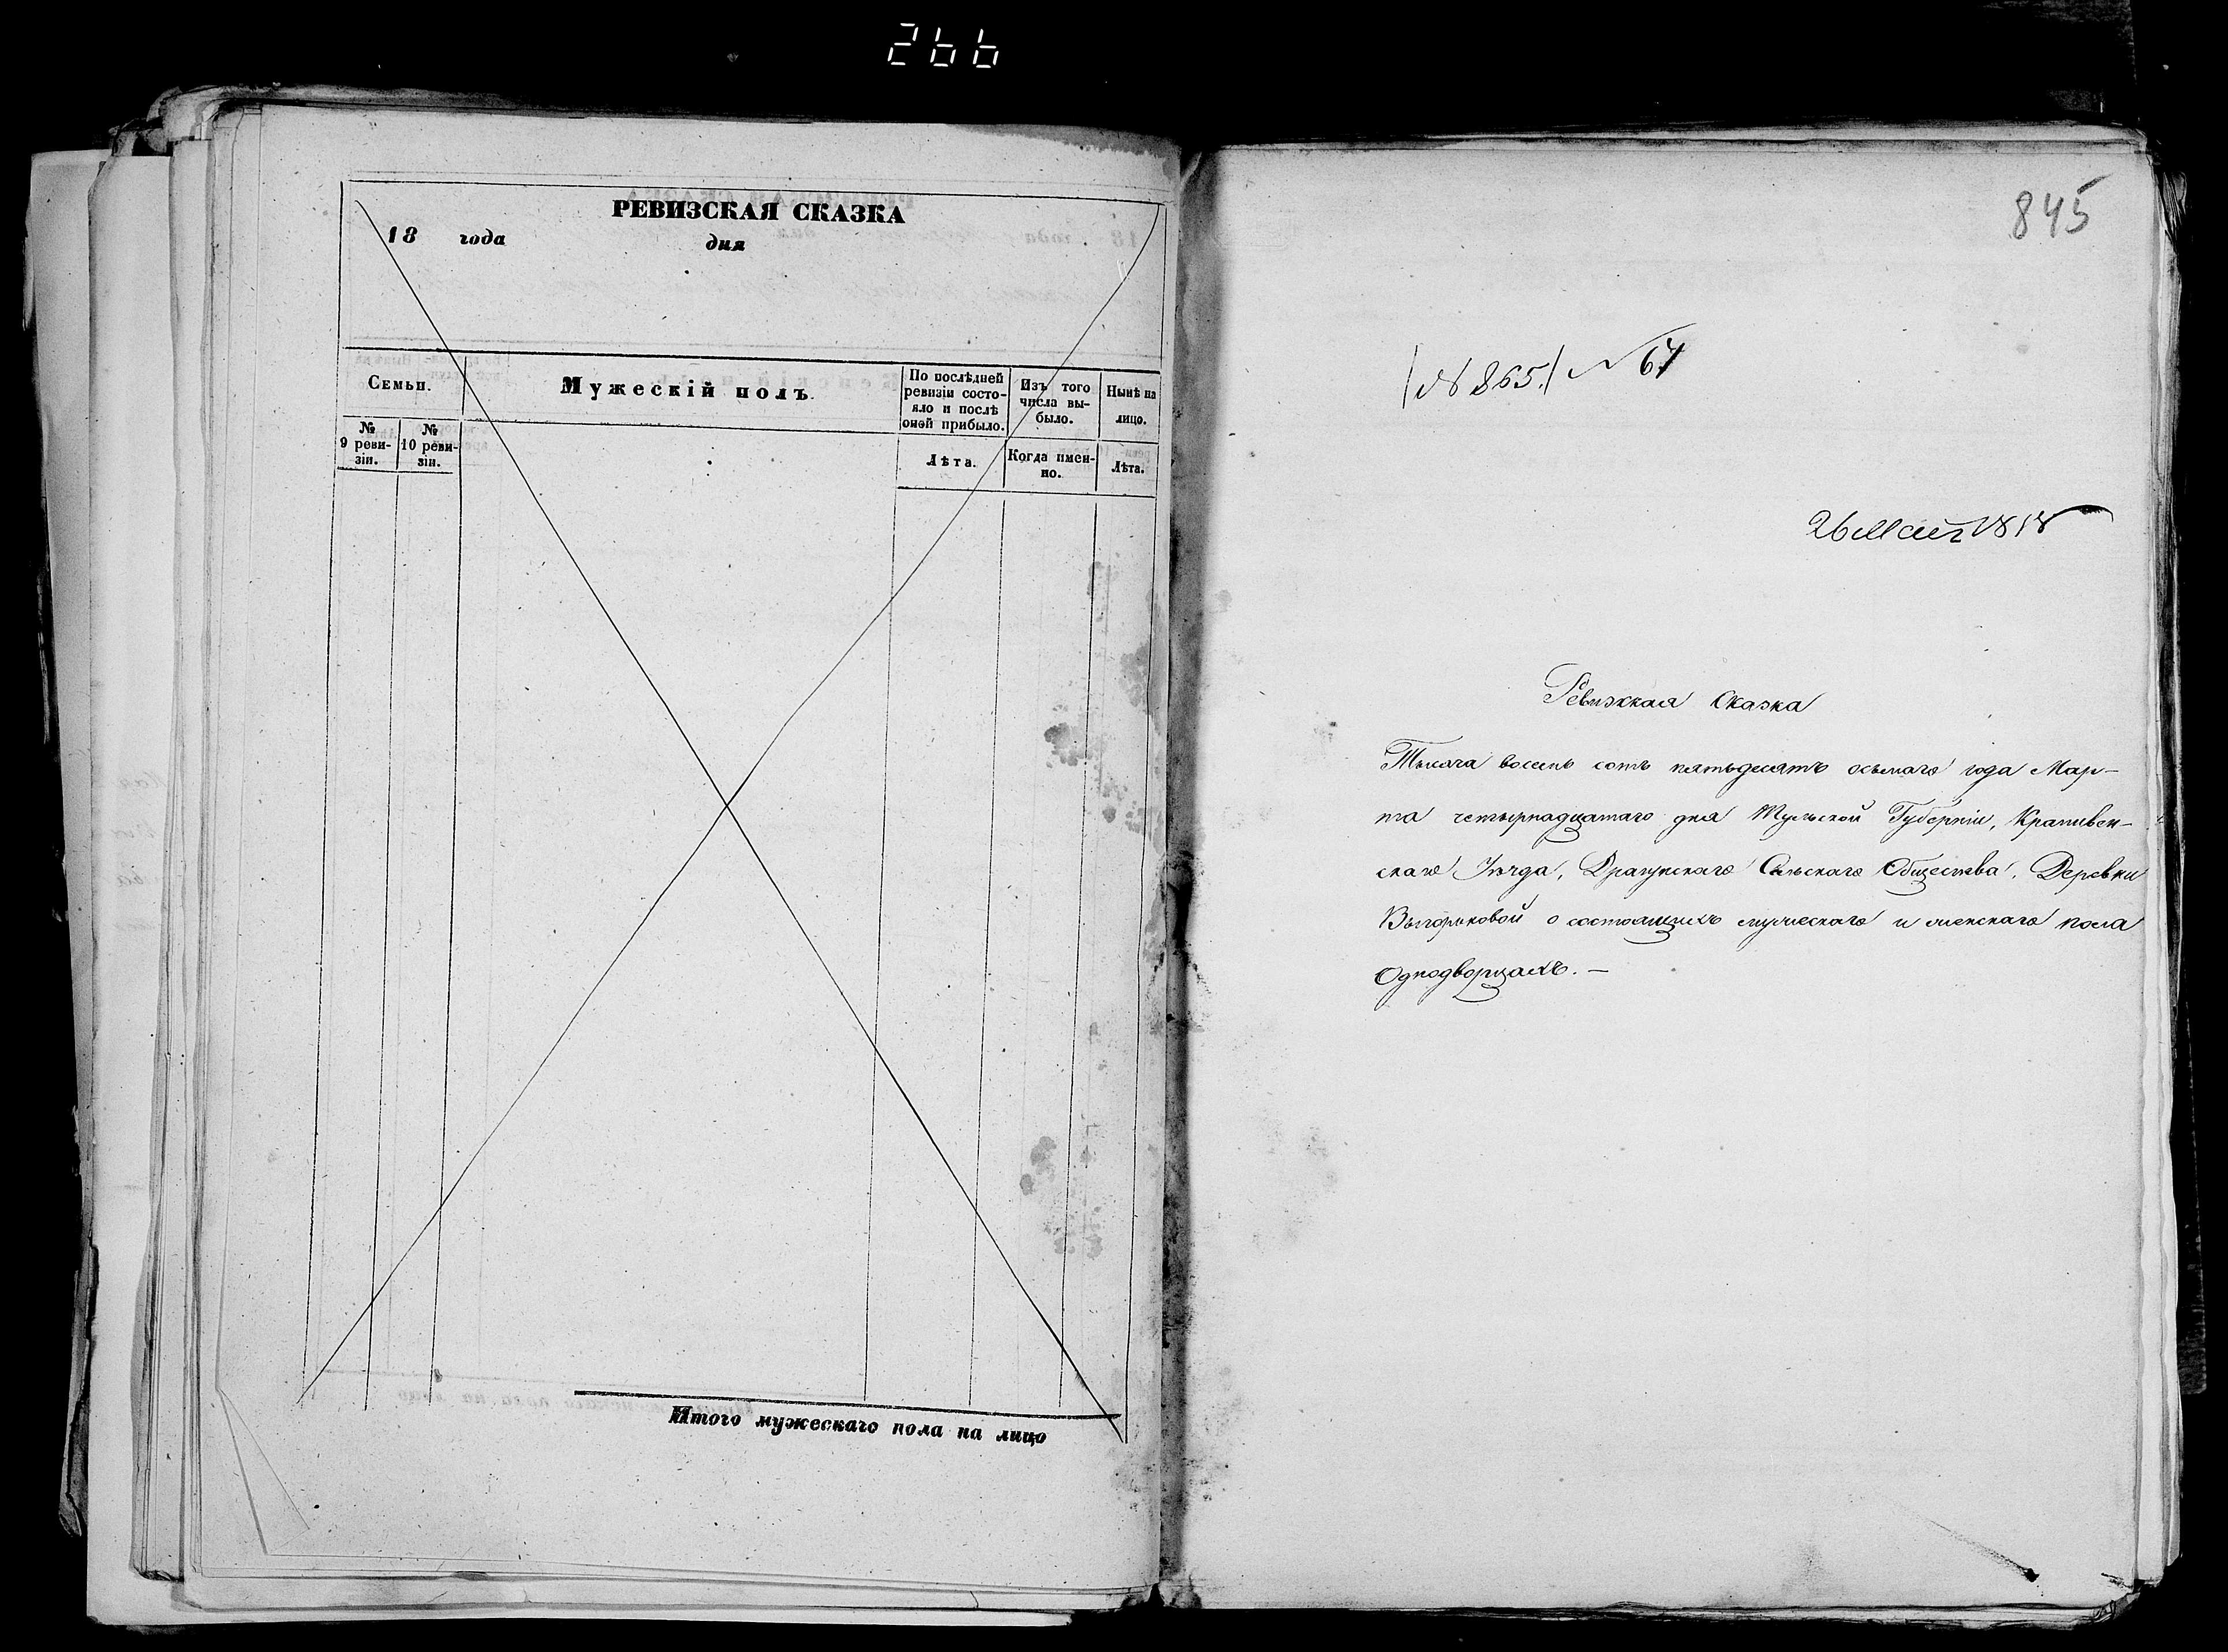 266
РЕВИЗСКАЯ СКАЗКА
18 года дня
Семьи.
Мужескій полъ.
По послѣдней ревизіи состо-яло и послѣ оной прибыло.
Изъ того числа вы-было.
Нынѣ на лицо.
№ 9 реви-зіи.
№ 10 реви-зіи.
Лѣта.
Когда имен-но.
Лѣта.
Итого мужескаго пола на лицо
845
№ 865. № 67
26 Мая 1858
Ревизкая Сказка
Тысяча восемь сотъ пятьдесятъ осьмаго года Мар-
та четырнадцатаго дня Тульской Губерніи, Крапивен-
скаго Уѣзда, Драгунскаго Сельскаго Общества, Деревни
о состоящихъ мужескаго и женскаго пола
Однодворцахъ. —